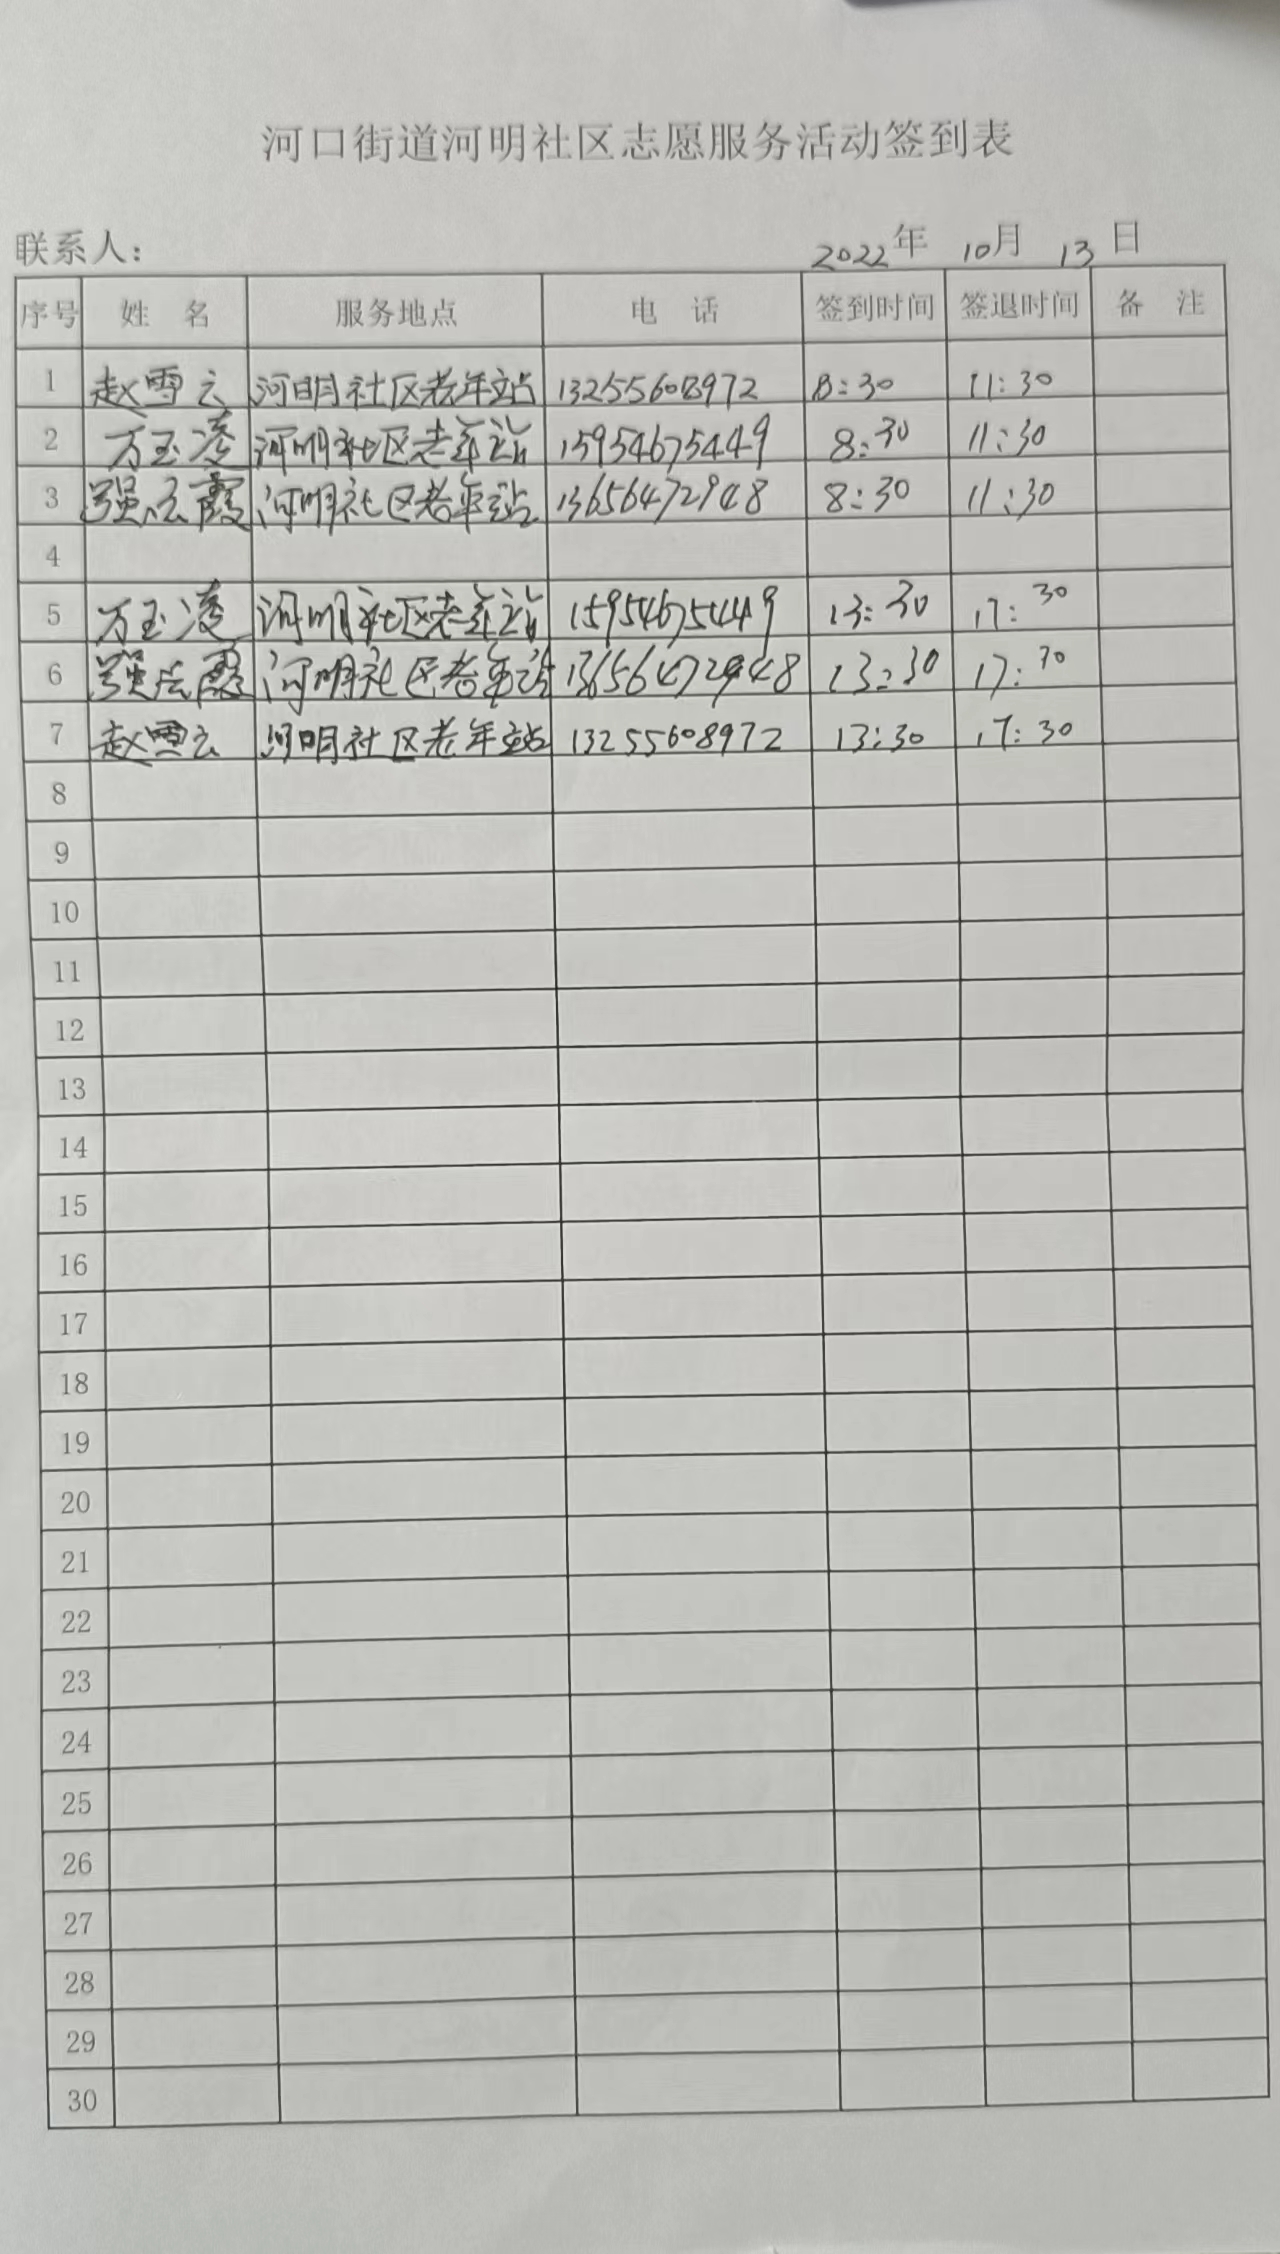 河口街道河明社区志愿服务活动签到表
联系人: 2022年 10月 13日
序号 姓 名 服务地点 电 话 签到时间 签退时间 备 注
1 赵雪云 河明社区老年站 13255608972 8:30 11:30
2 万玉凌 河明社区老年站 15954675449 8:30 11:30
3 强云霞 河明社区老年站 13656472948 8:30 11:30
4
5 万玉凌 河明社区老年站 15954675449 13:30 17:30
6 强云霞 河明社区老年站 13656472948 13:30 17:30
7 赵雪云 河明社区老年站 13255608972 13:30 17:30
8
9
10
11
12
13
14
15
16
17
18
19
20
21
22
23
24
25
26
27
28
29
30